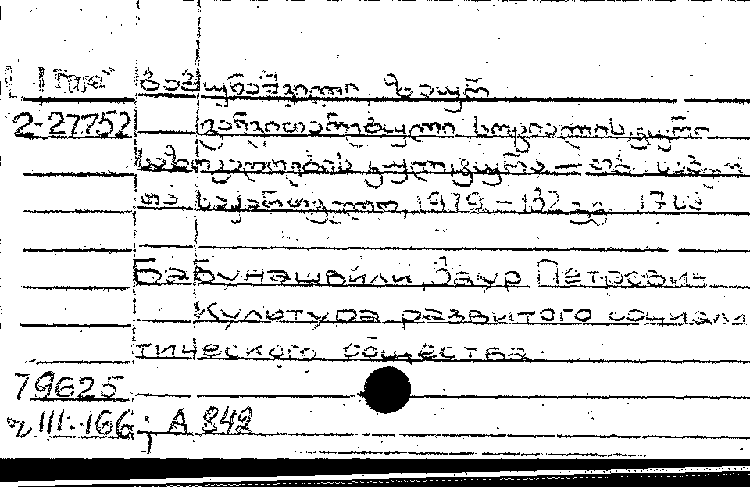 ბაბუნაშვილი, ზაურ
2-27752 განვითარებული სოციალისტური
საზოგადოების კულტურა. — თბ. საბჭო
თა საქართველო, 1979. – 132 გვ. 17სმ
Бабунашвили, Заур Петрович
Культура развитого социали
тического общества.
79625
III.-166; А 842